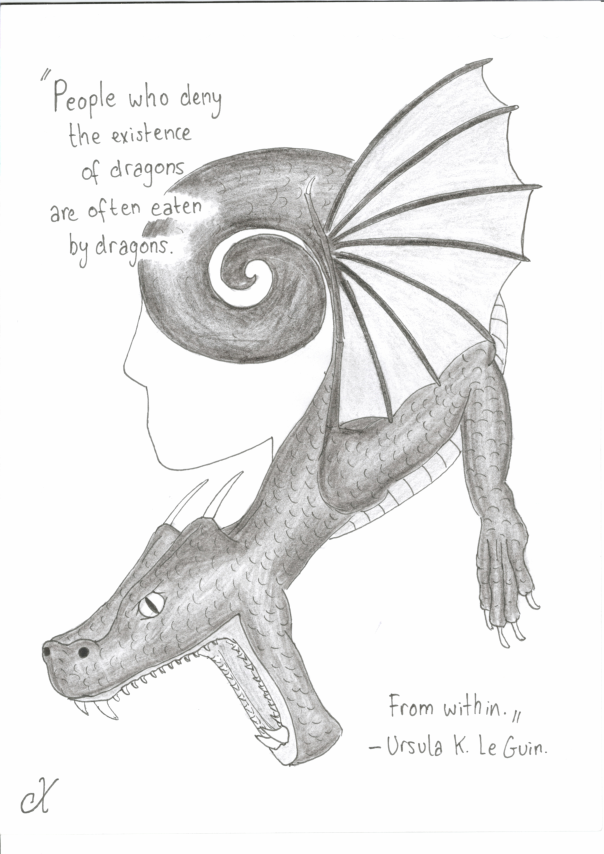 "People who deny
the existence
of dragons
are often eaten
by dragons.
From within."
- Ursula K. Le Guin.